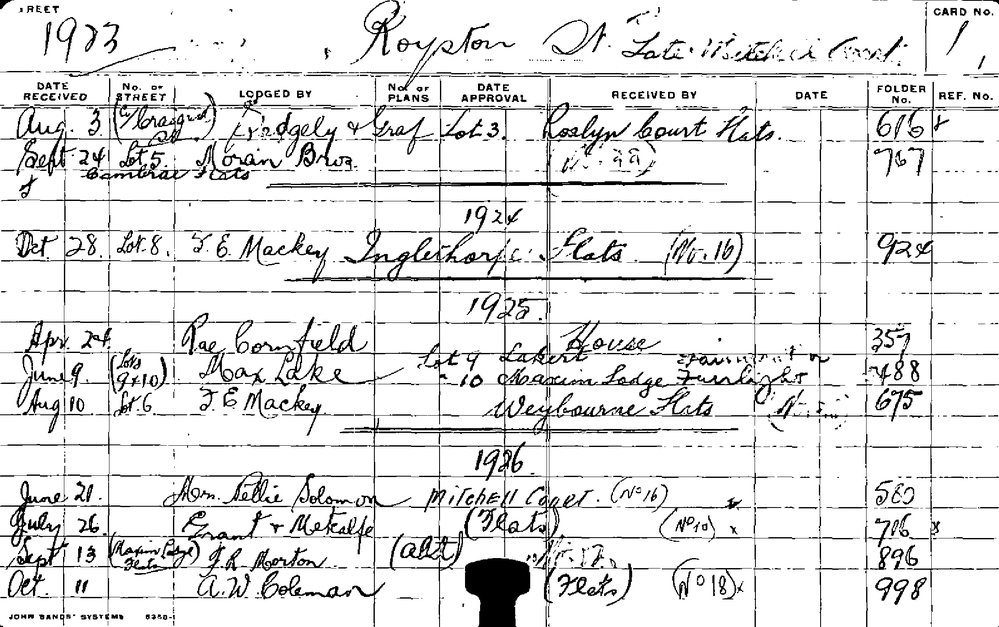 STREET CARD NO.
1923 Roypton St. Late Mitchell Court. 1
DATE RECEIVED No. OF STREET LODGED BY No. OF PLANS DATE APPROVAL RECEIVED BY DATE FOLDER No. REF. No.
Aug. 3 & Graf Lot 3. Roslyn Court Flats. 616 x
Sept 24 Lot 5. Moran Bros. 767
Cambrae Flats
1924
Oct 28. Lot 8. F. E. Mackey Inglethorpe Flats (No. 16) 924
1925
Apr. 24. Rae Cornfield House 357
June 9. (Lots 9 & 10) Max Lake Lot 9 488
" 10 Maxim Lodge Fairlight
Aug 10 Lot 6 F. E. Mackey Weybourne Flats 675
1926
June 21. Mrs. Nellie Solomon MITCHELL COURT. (No 16) 580
July 26. Grant & Metcalfe (Flats) (No 10) x 716 x
Sept 13 (Maxim Lodge Flats) J. R. Morton (alt) 896
Oct. 11 A. W. Coleman (Flats) (No 18) x 998
JOHN SANDS' SYSTEMS